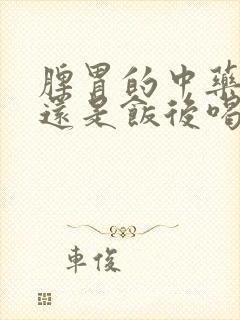 脾胃的中藥
還是飯後喝
車俊